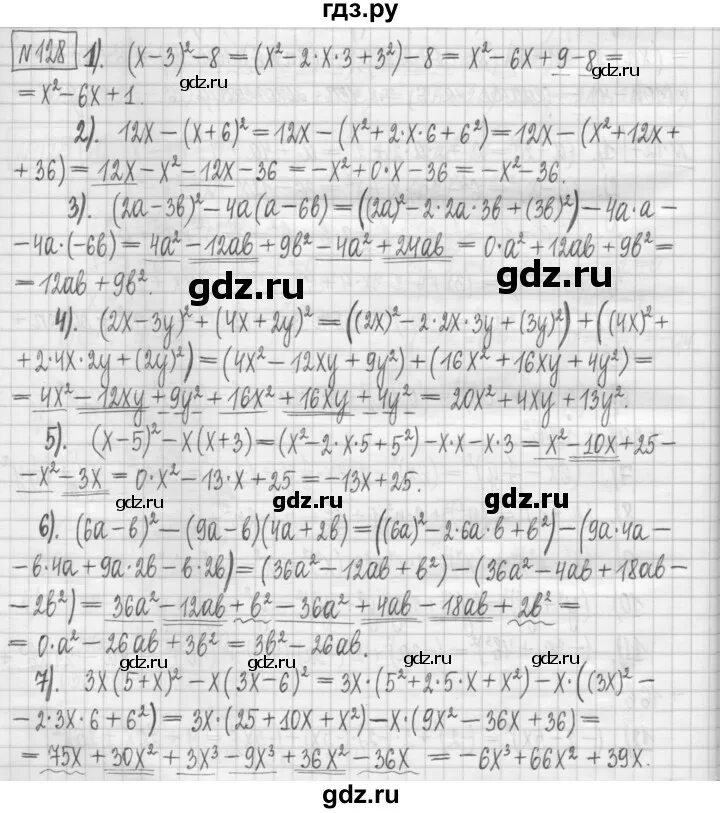 гдз.ру
№128 1). (x-3)²-8=(x²-2·x·3+3²)-8=x²-6x+9-8=
=x²-6x+1.
2). 12x-(x+6)²=12x-(x²+2·x·6+6²)=12x-(x²+12x+
+36)=12x-x²-12x-36=-x²+0·x-36=-x²-36.
3). (2a-3b)²-4a(a-6b)=((2a)²-2·2a·3b+(3b)²)-4a·a-
-4a·(-6b)=4a²-12ab+9b²-4a²+24ab=0·a²+12ab+9b²=
=12ab+9b².
gdz.ru gdz.ru
4). (2x-3y)²+(4x+2y)²=((2x)²-2·2x·3y+(3y)²)+((4x)²+
+2·4x·2y+(2y)²)=(4x²-12xy+9y²)+(16x²+16xy+4y²)=
=4x²-12xy+9y²+16x²+16xy+4y²=20x²+4xy+13y².
5). (x-5)²-x(x+3)=(x²-2·x·5+5²)-x·x-x·3=x²-10x+25-
-x²-3x=0·x²-13·x+25=-13x+25.
gdz.ru gdz.ru
6). (6a-b)²-(9a-b)(4a+2b)=((6a)²-2·6a·b+b²)-(9a·4a-
-b·4a+9a·2b-b·2b)=(36a²-12ab+b²)-(36a²-4ab+18ab-
-2b²)=36a²-12ab+b²-36a²+4ab-18ab+2b²=
=0·a²-26ab+3b²=3b²-26ab.
gdz.ru gdz.ru
7). 3x(5+x)²-x(3x-6)²=3x·(5²+2·5·x+x²)-x·((3x)²-
-2·3x·6+6²)=3x·(25+10x+x²)-x·(9x²-36x+36)=
=75x+30x²+3x³-9x³+36x²-36x=-6x³+66x²+39x.
gdz.ru